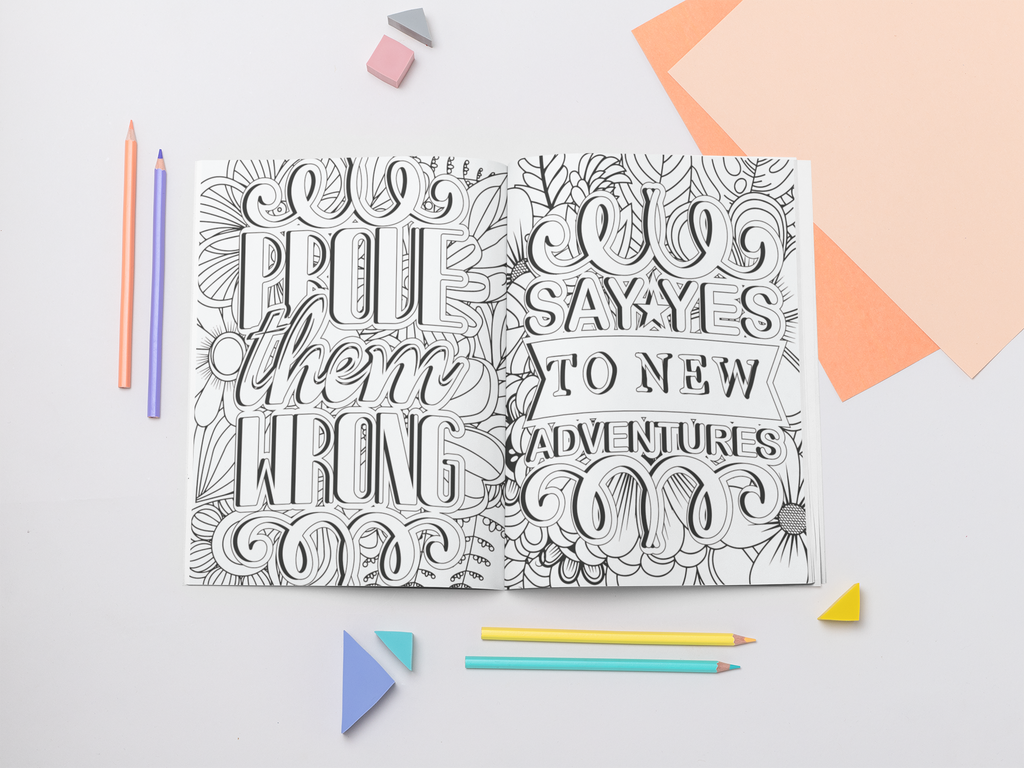 PROVE
them
WRONG
SAY★YES
TO NEW
ADVENTURES